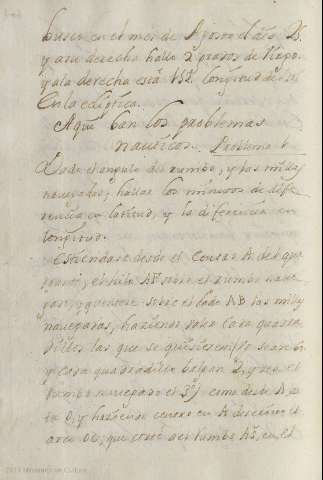 busco en el mes de Agosto el año 25.
y a su derecha hallo 2 grados de
y a la derecha está 152. longitud de
En la ecliptica.
Aqui ban los problemas
nauticos. Problema 1
Dado el angulo del rumbo, y las millas
navegadas; hallar los minutos de dife
rencia en latitud, y la diferencia en
longitud.
Estiendase desde el Centro A del qua
el hilo AF sobre el rumbo nave
gado, y quentese sobre el lado AB las millas
navegadas, haziendo valer cada quadra
dillos las que se
y cada quadradillo balgan 2, y sea el
rumbo navegado el 3º; como desde A as
ta O, y haziendo centro en A descrivo el
arco OC, que corte a el rumbo AS, en el